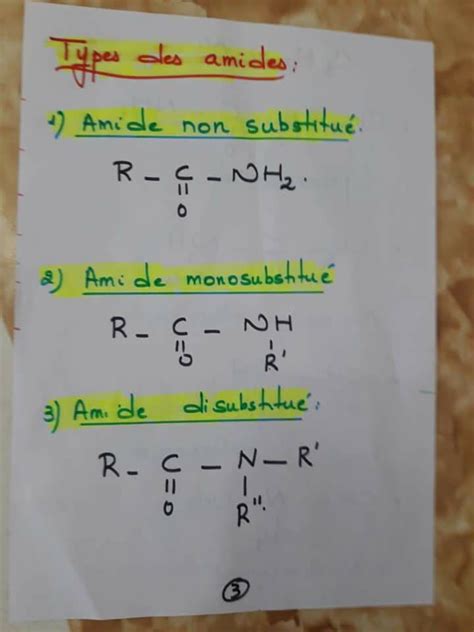 Types des amides:
1) Amide non substitué.
R - C - NH2.
=
O
2) Amide monosubstitué
R - C - NH
= -
O R'
3) Amide disubstitué:
R - C - N - R'
= -
O R''.
3